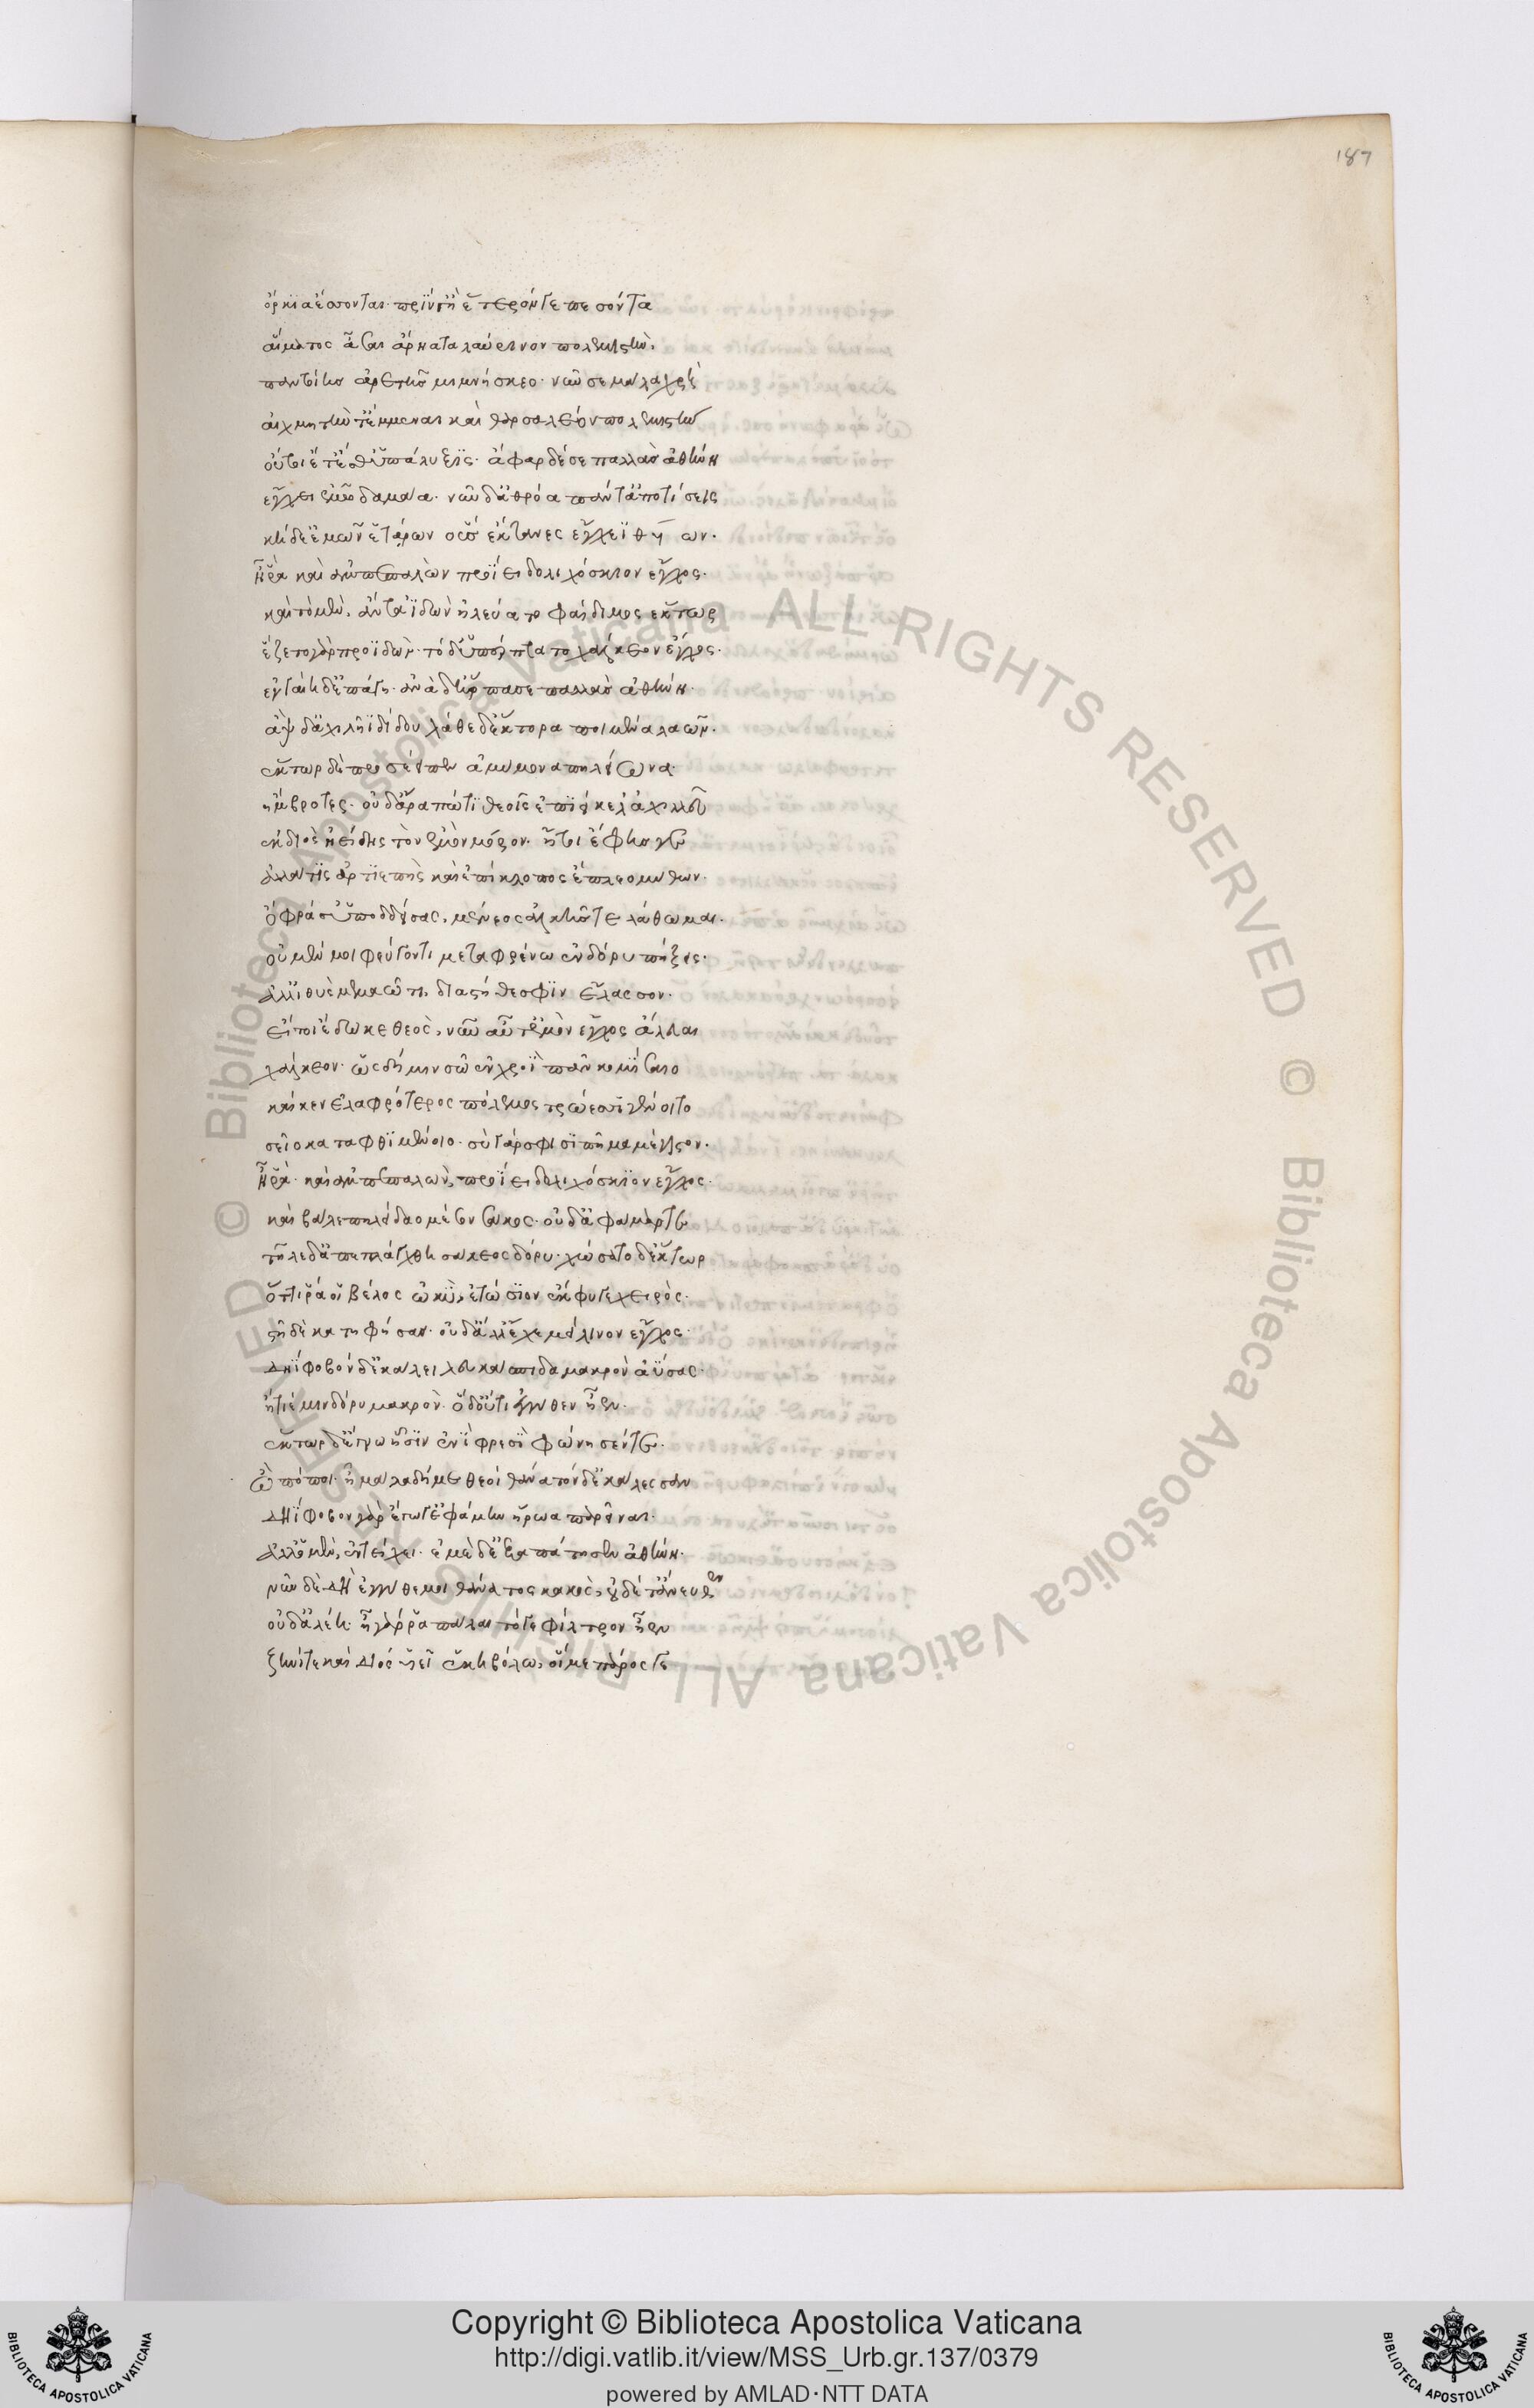 187
ὅρκια ἔσσονται· πρίν γ' ἢ ἕτερόν γε πεσόντα
αἵματος ἆσαι ἄρηα ταλαύρινον πολεμιστήν.
παντοίης ἀρετῆς μιμνήσκεο· νῦν σε μάλα χρὴ
αἰχμητήν τ' ἔμμεναι καὶ θαρσαλέον πολεμιστήν
οὔ τοι ἔτ' ἔσθ' ὑπάλυξις· ἄφαρ δέ σε παλλὰς ἀθήνη
ἔγχει ἐμῷ δαμάα· νῦν δ' ἀθρόα πάντ' ἀποτίσεις
κήδε' ἐμῶν ἑτάρων οὓς ἔκτανες ἔγχεϊ θύων.
ἦ ῥα καὶ ἀμπεπαλὼν προΐει δολιχόσκιον ἔγχος.
καὶ τὸ μὲν ἄντα ἰδὼν ἠλεύατο φαίδιμος ἕκτωρ
ἕζετο γὰρ προϊδών· τὸ δ' ὑπέρπτατο χάλκεον ἔγχος.
ἐν γαίῃ δ' ἐπάγη· ἀνὰ δ' ἥρπασε παλλὰς ἀθήνη.
ἂψ δ' ἀχιλῆϊ δίδου λάθε δ' ἕκτορα ποιμένα λαῶν.
ἕκτωρ δὲ προσέειπεν ἀμύμονα πηλείωνα.
ἤμβροτες· οὐδ' ἄρα πώ τι θεοῖς ἐπιείκελ' ἀχιλλεῦ
ἐκ διὸς ἠείδης τὸν ἐμὸν μόρον· ἦ τοι ἔφης γε
ἀλλά τις ἀρτιεπὴς καὶ ἐπίκλοπος ἔπλεο μύθων.
ὄφρά σ' ὑποδδείσας, μένεος ἀλκῆς τε λάθωμαι.
οὐ μέν μοι φεύγοντι μεταφρένῳ ἐν δόρυ πήξεις.
ἀλλ' ἰθὺς μεμαῶτι διὰ στήθεσφιν ἔλασσον.
εἴ τοι ἔδωκε θεός, νῦν αὖτ' ἐμὸν ἔγχος ἄλευαι
χάλκεον· ὡς δή μιν σῷ ἐν χροῒ πᾶν κομίσαιο
καί κεν ἐλαφρότερος πόλεμος τρώεσσι γένοιτο
σεῖο καταφθιμένοιο· σὺ γάρ σφισι πῆμα μέγιστον.
ἦ ῥα· καὶ ἀμπεπαλὼν, προΐει δολιχόσκιον ἔγχος.
καὶ βάλε πηλείδαο μέσον σάκος· οὐδ' ἀφάμαρτε
τῆλε δ' ἀπεπλάγχθη σάκεος δόρυ· χώσατο δ' ἕκτωρ
ὅττι ῥά οἱ βέλος ὠκὺ, ἐτώσιον ἔκφυγε χειρός.
στῆ δὲ κατηφήσας· οὐδ' ἄλλ' ἔχε μείλινον ἔγχος.
δηΐφοβον δ' ἐκάλει λευκάσπιδα μακρὸν ἀΰσας.
ᾔτεέ μιν δόρυ μακρόν· ὁ δ' οὔ τι ἐγγύθεν ἦεν.
ἕκτωρ δ' ἔγνω ᾗσιν ἐνὶ φρεσὶ φώνησέν τε.
ὢ πόποι· ἦ μάλα δή με θεοὶ θάνατόν δ' ἐκάλεσσαν
δηΐφοβον γὰρ ἔγωγ' ἐφάμην ἥρωα παρεῖναι.
ἀλλ' ὁ μὲν, ἐν τείχει· ἐμὲ δ' ἐξαπάτησεν ἀθήνη.
νῦν δὲ δὴ ἐγγύθι μοι θάνατος κακὸς, οὐδέ τ' ἄνευθεν
οὐδ' ἀλέη· ἦ γάρ ῥα πάλαι τό γε φίλτερον ἦεν
ζηνί τε καὶ διὸς υἷϊ ἑκηβόλῳ, οἵ με πάρος γε
Copyright © Biblioteca Apostolica Vaticana
http://digi.vatlib.it/view/MSS_Urb.gr.137/0379
powered by AMLAD·NTT DATA